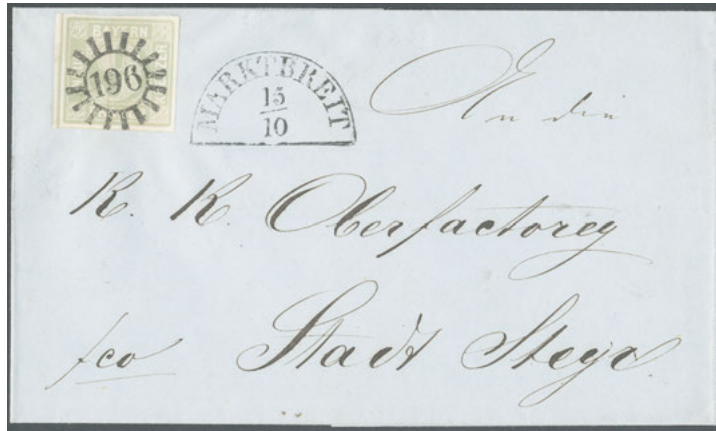 BAYERN
196
MARKTBREIT
15
10
An die
K. K. Oberfactorey
fco Stadt Steyr.